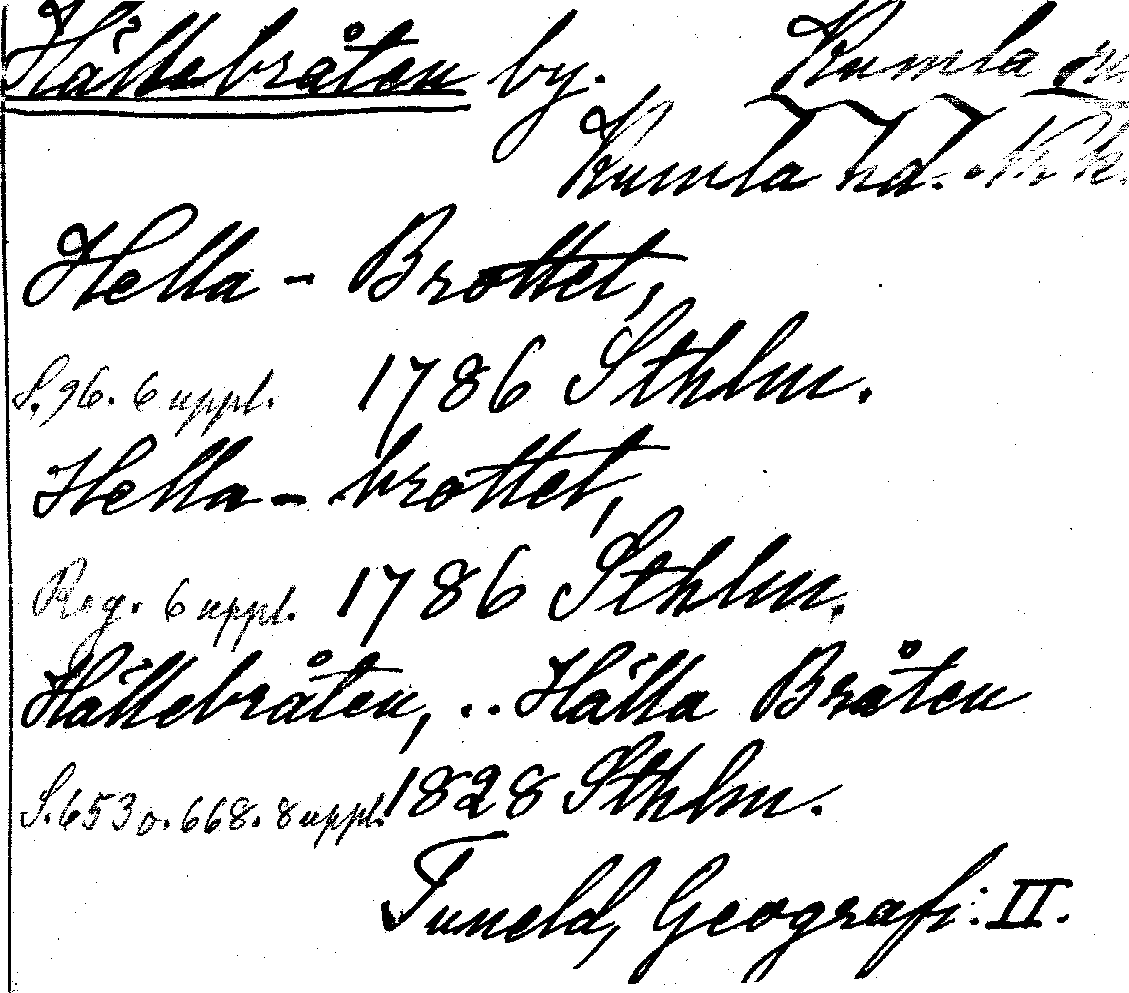 Hällebråten by. Kumla sn.
Kumla hd. Nrk.
Hella-Brottet,
S. 96. 6 uppl. 1786 Sthlm.
Hella-brottet,
Reg. 6 uppl. 1786 Sthlm.
Hällebråten, .. Hälla Bråten
S. 653 o. 668. 8 uppl. 1828 Sthlm.
Tuneld, Geografi: II.